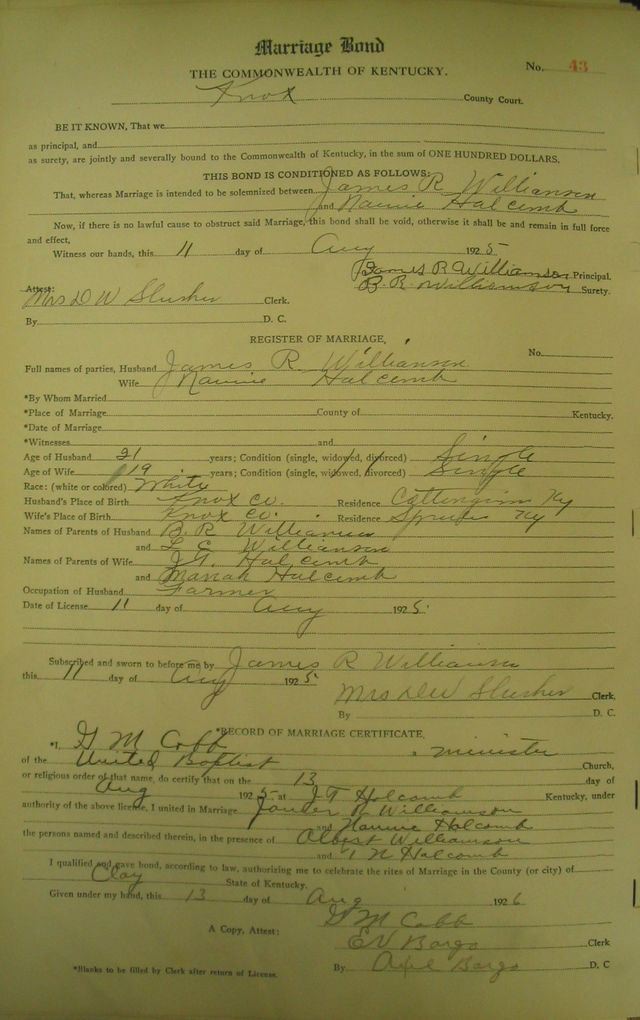 Marriage Bond
No. 43
THE COMMONWEALTH OF KENTUCKY.
Knox County Court.
BE IT KNOWN, That we
as principal, and
as surety, are jointly and severally bound to the Commonwealth of Kentucky, in the sum of ONE HUNDRED DOLLARS.
THIS BOND IS CONDITIONED AS FOLLOWS:
That, whereas Marriage is intended to be solemnized between James R Williamson
and Nannie Halcomb
Now, if there is no lawful cause to obstruct said Marriage, this bond shall be void, otherwise it shall be and remain in full force
and effect,
Witness our hands, this 11 day of Aug 1925
James R Williamson Principal.
B. R. Williamson Surety.
Attest:
Mrs D W Slusher Clerk.
By D. C.
REGISTER OF MARRIAGE,
No.
Full names of parties, Husband James R Williamson
Wife Nannie Halcomb
*By Whom Married
*Place of Marriage County of Kentucky.
*Date of Marriage
*Witnesses and
Age of Husband 21 years; Condition (single, widowed, divorced) Single
Age of Wife 19 years; Condition (single, widowed, divorced) Single
Race: (white or colored) White
Husband's Place of Birth Knox Co. Residence Ky
Wife's Place of Birth Knox Co. Residence Ky
Names of Parents of Husband B. R Williamson
and L C Williamson
Names of Parents of Wife J. T. Halcomb
and Mariah Halcomb
Occupation of Husband Farmer
Date of License 11 day of Aug 1925
Subscribed and sworn to before me by James R Williamson
this 11 day of Aug 1925
Mrs D W Slusher Clerk.
By D. C.
*RECORD OF MARRIAGE CERTIFICATE.
*I, G M Cobb, minister
of the United Baptist Church,
or religious order of that name, do certify that on the 13 day of
Aug 1925 at J. T Holcomb Kentucky, under
authority of the above license, I united in Marriage James R Williamson
and Nannie Holcomb
the persons named and described therein, in the presence of Albert Williamson
and T N Halcomb
I qualified and gave bond, according to law, authorizing me to celebrate the rites of Marriage in the County (or city) of
Clay State of Kentucky.
Given under my hand, this 13 day of Aug 1926
G M Cobb
A Copy, Attest: E V Bargo Clerk
*Blanks to be filled by Clerk after return of License. By Bargo D. C